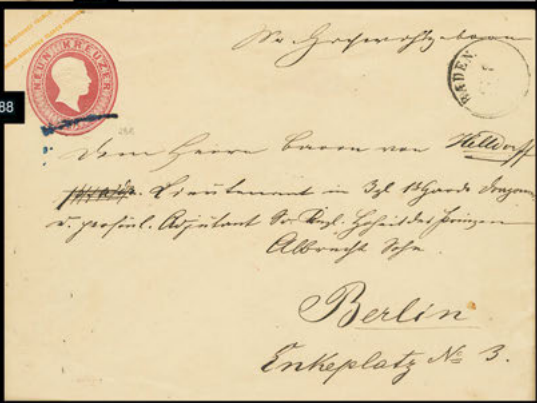 88
NEUN KREUZER
BADEN
Sr. Hochwohlgeboren
Dem Herrn Baron von Helldorff
Lieutenant im Kgl 1t Garde Dragoner
u. persönl. Adjutant Sr. Kögl. Hoheit des Prinzen
Albrecht Sohn.
Berlin
Enkeplatz No 3.